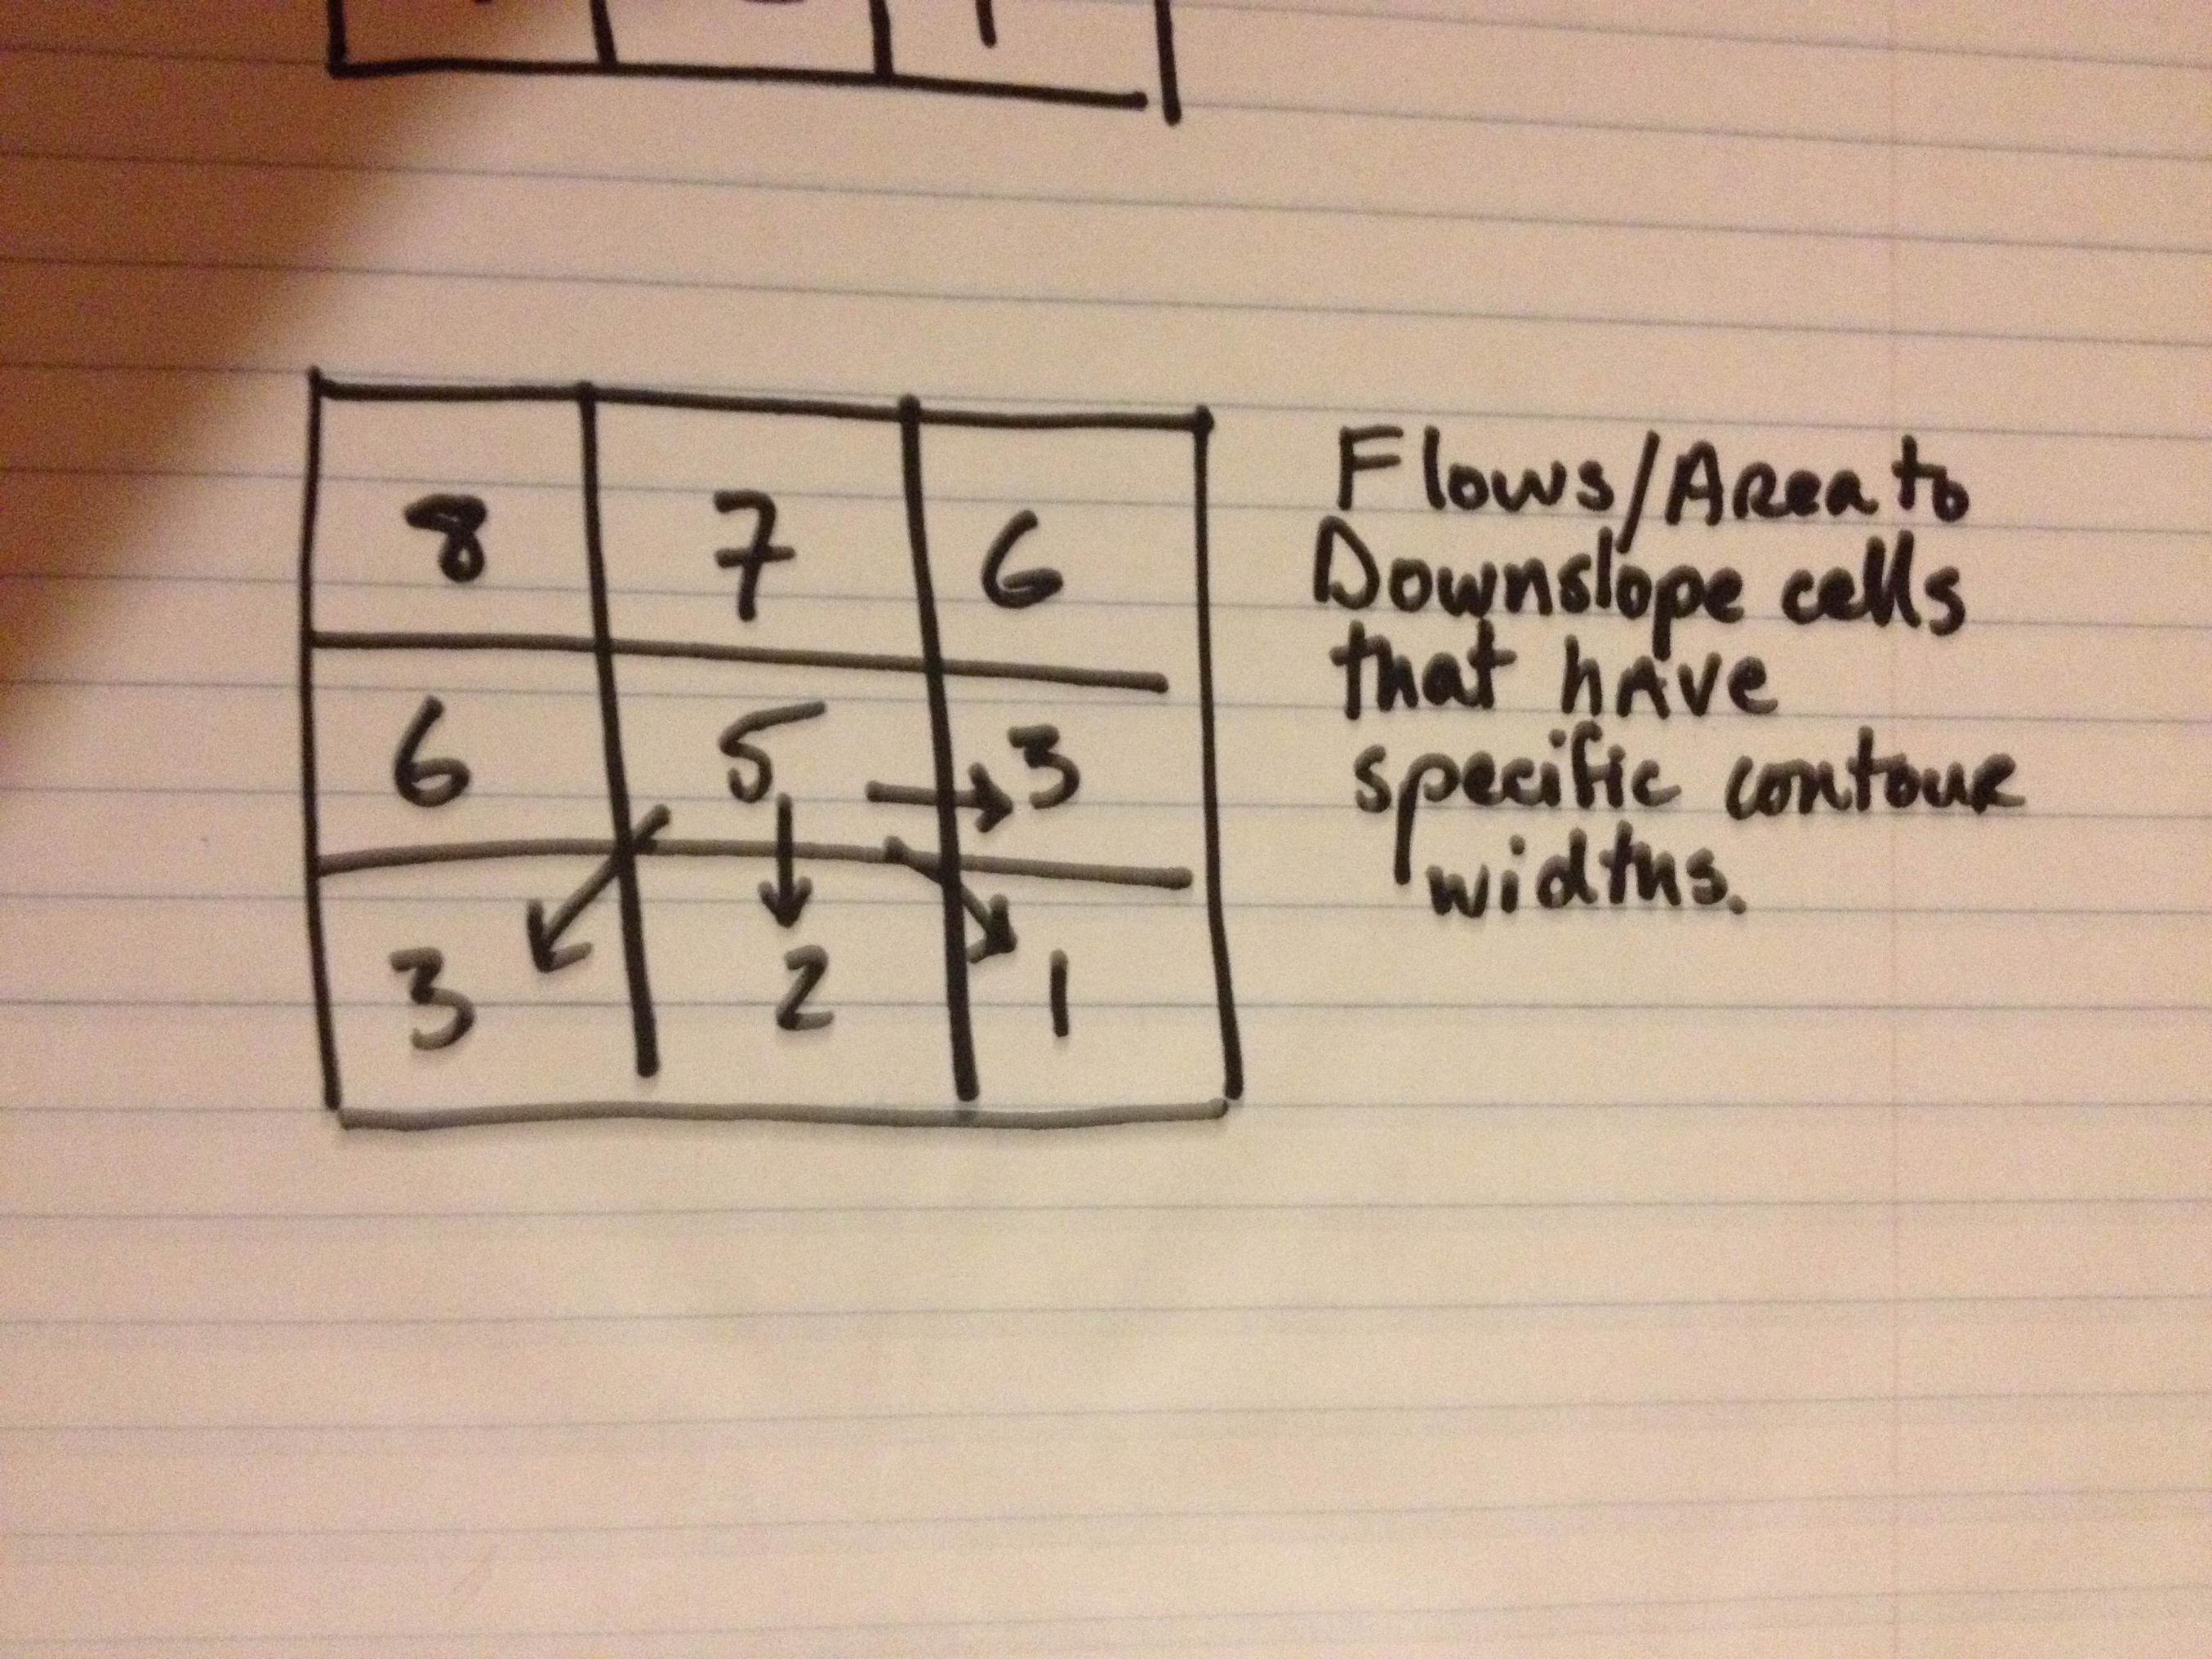 8 7 6
6 5 3
3 2 1
Flows/Area to
Downslope cells
that have
specific contour
widths.